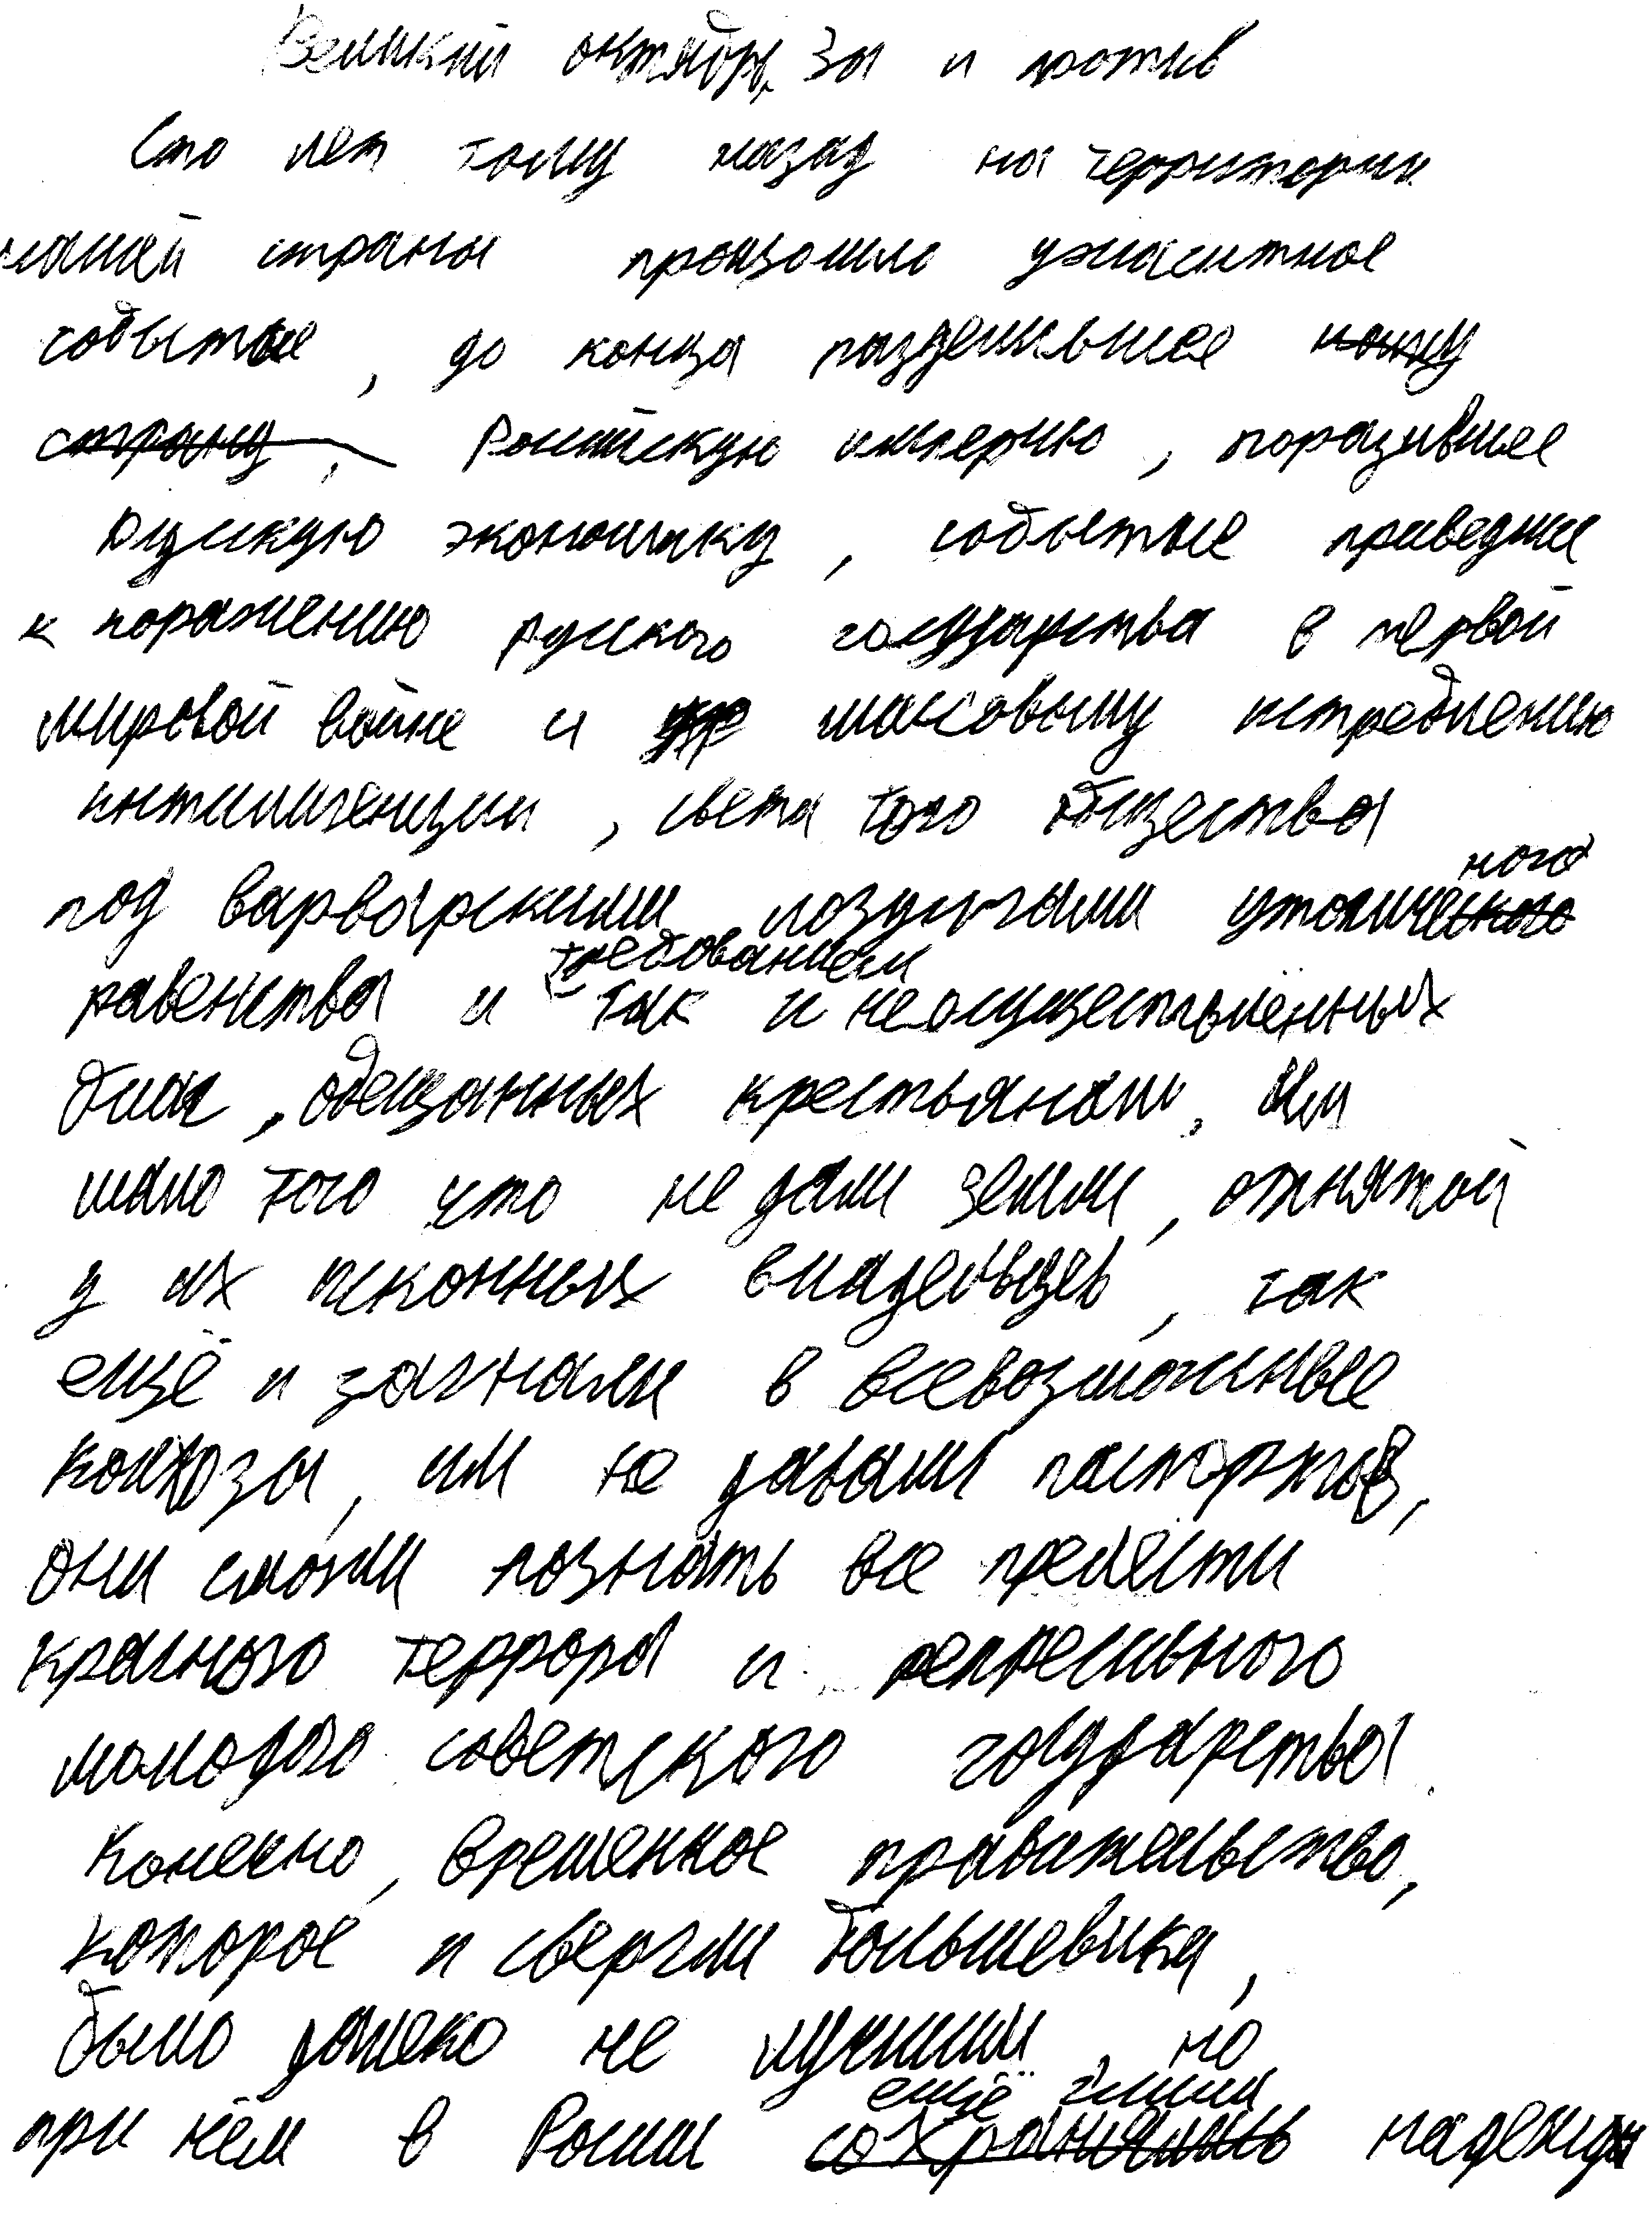 Великий октябрь, За и против
Сто лет тому назад на территории
нашей страны произошло ужаситное
событие, до конца разделившее нашу
страну, Российскую империю, поразившее
русскую экономику, событые приведшее
к поражению русского государства в первой
мировой войне и массовому истреблению
интилигенции, света того общества
под варварскими лозунгами утопичесного
равенства и требованием так и неосуществлённых
благ, обещанных крестьянам, Им
мало того что не дали земли, отнятой
у их исконных владельцев, так
ещё и загнали в всевозможные
колхозы, им не давали паспортов,
они смогли познать все прелести
красного террора и репресивного
молодого советского государства
Конечно, временное правительство,
которое и свергли большевики,
было далеко не лучшим, но
при нём в Росии сохранялись ещё надежды